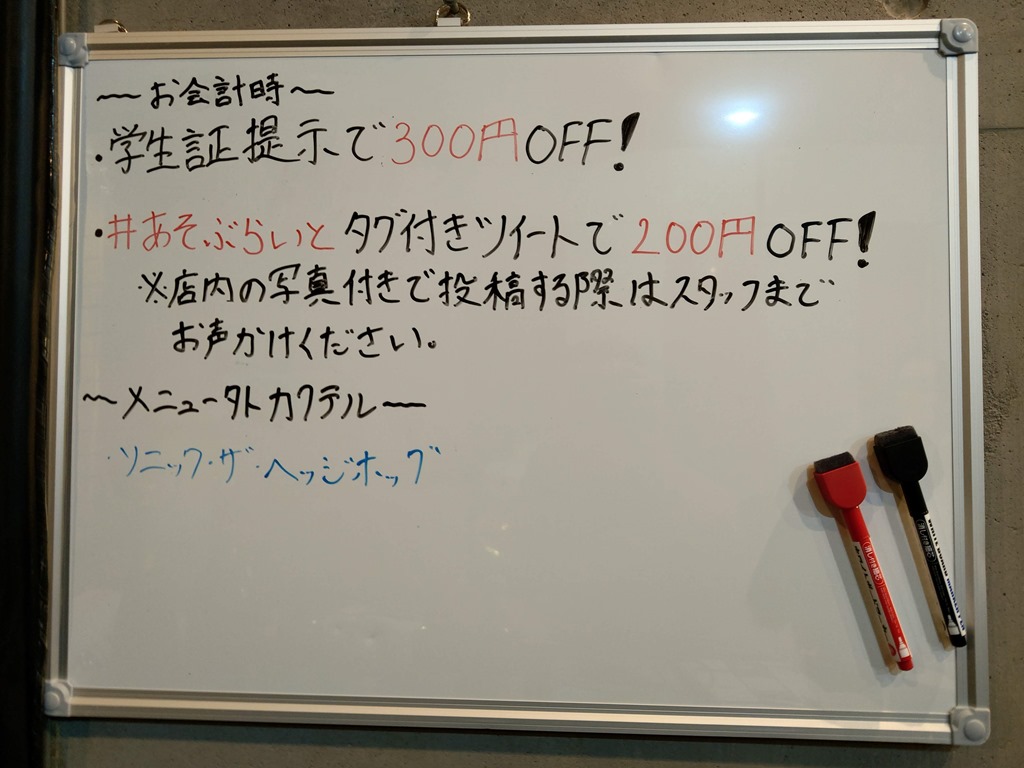 ～お会計時～
・学生証提示で300円OFF!
・#あそぶらいとタグ付きツイートで200円OFF!
※店内の写真付きで投稿する際はスタッフまで
お声かけください。
～メニュー外カクテル～
・ソニック・ザ・ヘッジホッグ